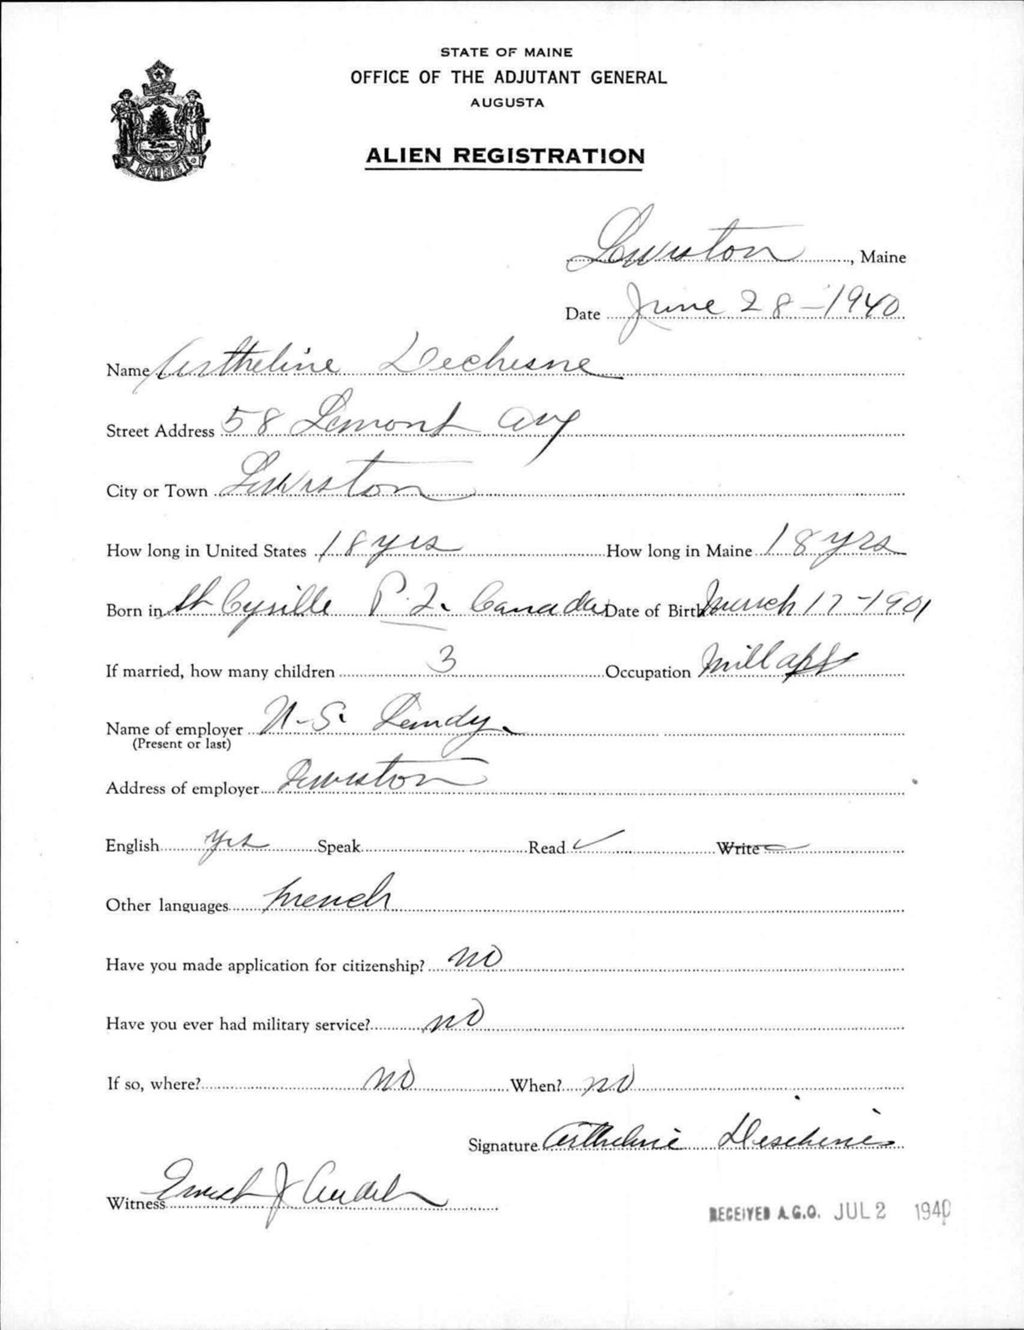 STATE OF MAINE
OFFICE OF THE ADJUTANT GENERAL
AUGUSTA
MAINE
ALIEN REGISTRATION
Lewiston, Maine
Date June 28-1940
Name Estheline Dechesne
Street Address 58 Lemont Av
City or Town Lewiston
How long in United States 18 yrs How long in Maine 18 yrs
Born in St Cyrille P. Q. Canada Date of Birth March 17-1901
If married, how many children 3 Occupation Mill
Name of employer
(Present or last)
Address of employer Lewiston
English yes Speak Read ✓ Write
Other languages french
Have you made application for citizenship? no
Have you ever had military service? no
If so, where? no When? no
Signature
Witness Ernest J
RECEIVED A.G.O. JUL 2 1940